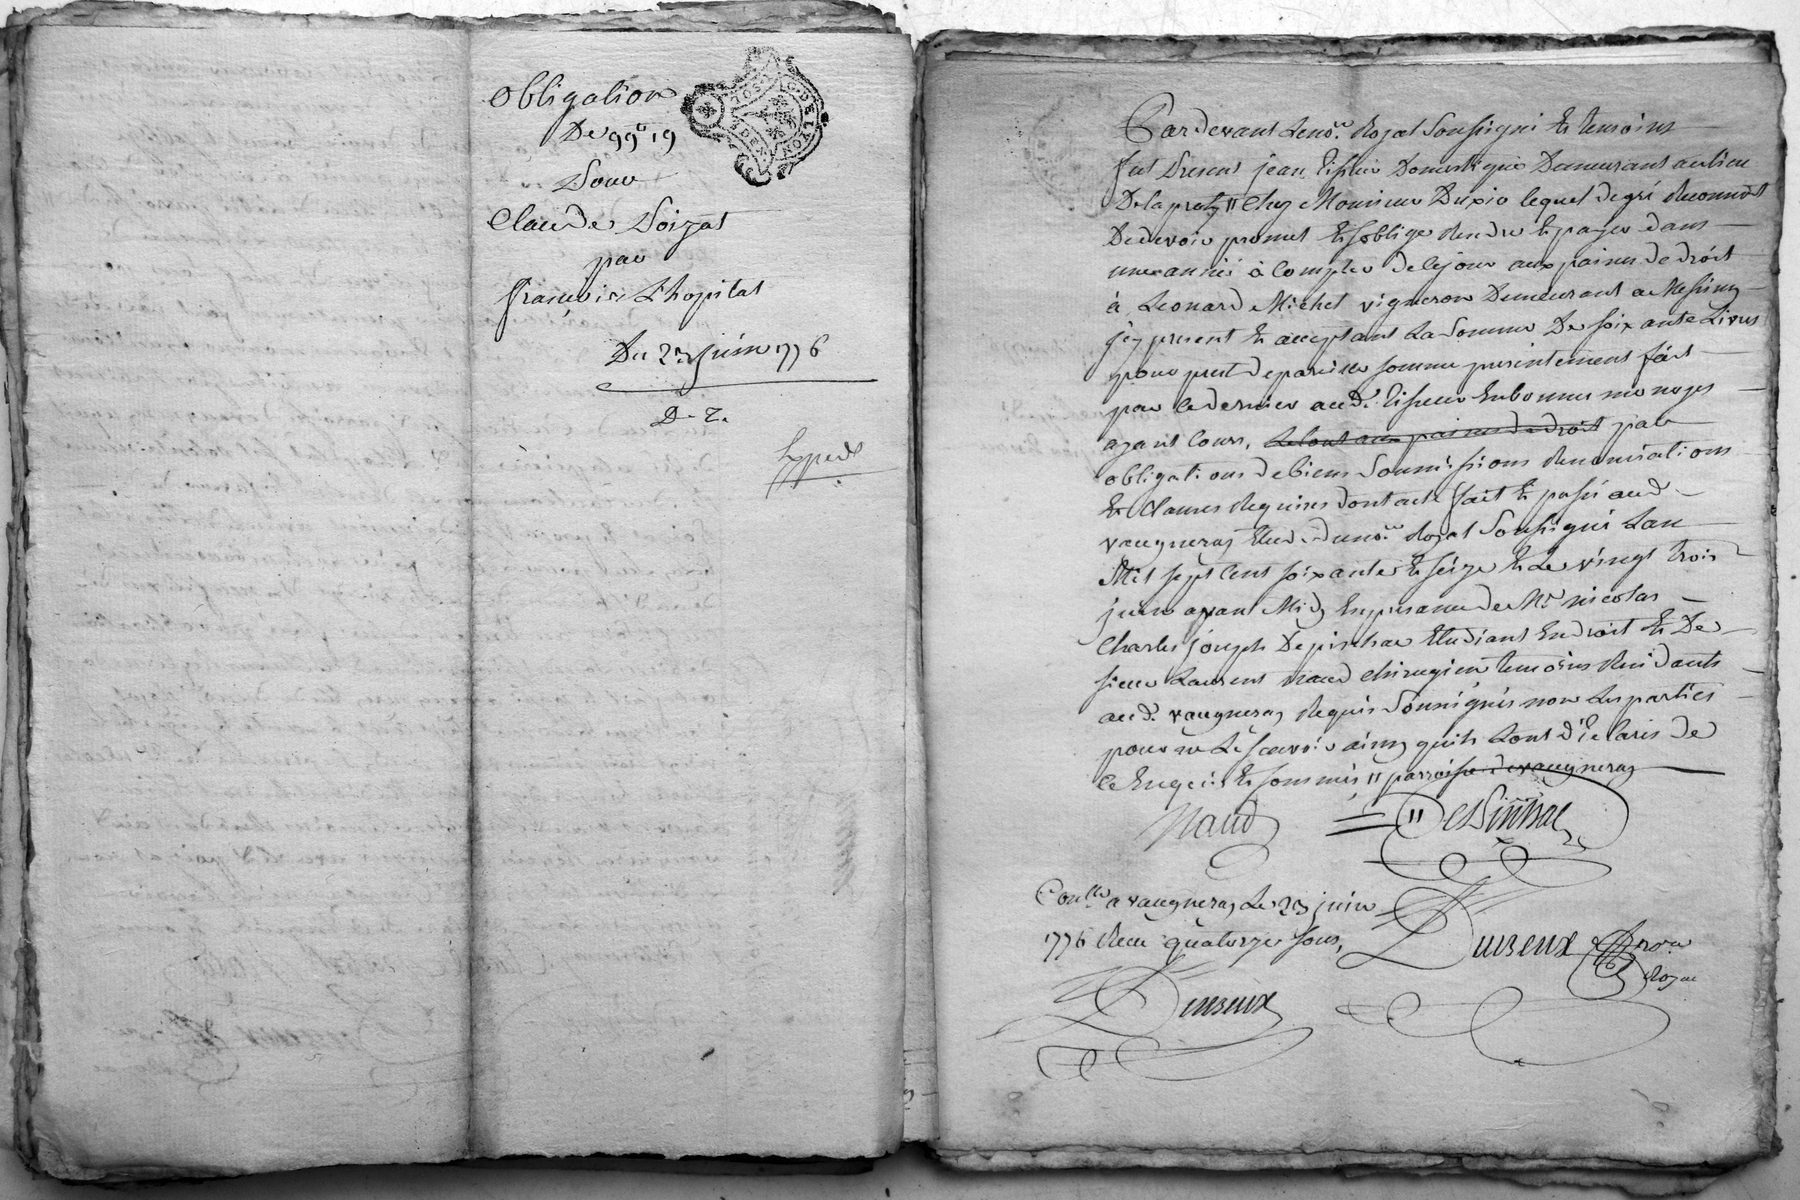 Obligation
De 99# 19
Pour
Claude Poizat
par
françois L'hopital
Du 23 juin 1776
D. 2.
Exped
Pardevant Le no.re Royal Soussigné Et temoins
fut Present jean Domestique Demeurant au lieu
De la pratz // chez Monsieur lequel de gré Reconnoit
De devoir promet Et s'oblige Rendre Et payer dans
une année à Compter de Ce jour aux paines de droit
à Leonard Michel vigneron Demeurant a Messimy
j'cy present Et acceptant La Somme De soixante Livres
pour prest de pareille somme presentement fait
par le dernier aud. En bonnes monoyes
ayant Cours, Le tout aux paines de droit par
obligations de biens Soumissions Renonciations
Et Clauses Requises dont acte fait Et passé aud.
vaugneray Etude du no.re Royal Soussigné L'an
Mil sept Cent soixante Et seize Et Le vingt trois
juin avant Midy En presance de M.r nicolas
Charles joseph De pinthac Etudiant En droit Et De
sieur Laurent naud chirurgien temoins Residants
aud. vaugneray Requis Soussignés non Les parties
pour ne Le scavoir ainsy quils L'ont déclaré de
ce Enquis Et sommés // parroisse de vaugneray
Naud // DePinthac
Con.llé a vaugneray Le 23 juin
1776 Reçu quatorze sous, Dureux no.re
Royal
Dureux